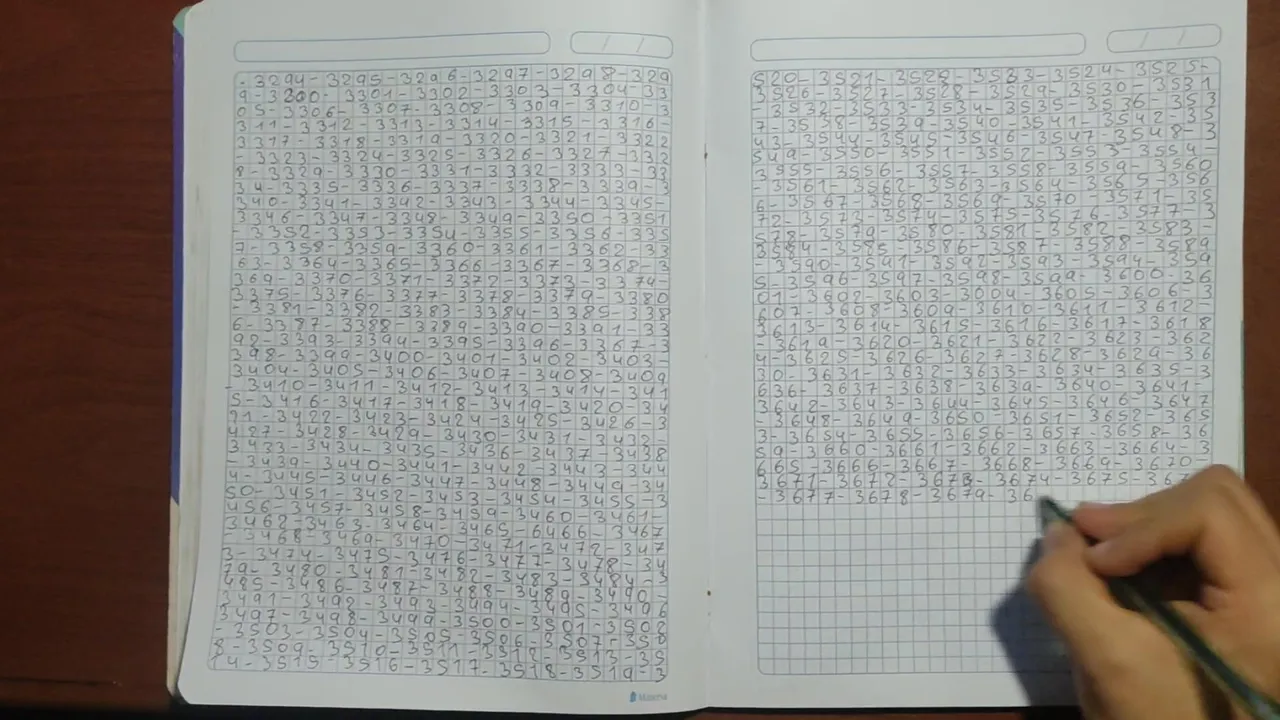 -3294-3295-3296-3297-3298-329
9-3300-3301-3302-3303-3304-33
05-3306- 3307-3308-3309-3310-3
311-3312-3313-3314-3315-3316-
3317-3318-3319-3320-3321-3322
-3323-3324-3325-3326-3327-332
8-3329-3330-3331-3332-3333-33
34-3335-3336-3337-3338-3339-3
340-3341-3342-3343-3344-3345-
3346-3347-3348-3349-3350-3351
-3352-3353-3354-3355-3356-335
7-3358-3359-3360-3361-3362-33
63-3364-3365-3366-3367-3368-3
369-3370-3371-3372-3373-3374-
3375-3376-3377-3378-3379-3380
-3381-3382-3383-3384-3385-338
6-3387-3388-3389-3390-3391-33
92-3393-3394-3395-3396-3367-3
398-3399-3400-3401-3402-3403-
3404-3405-3406-3407-3408-3409
-3410-3411-3412-3413-3414-341
5-3416-3417-3418-3419-3420-34
21-3422-3423-3424-3425-3426-3
427-3428-3429-3430-3431-3432-
3433-3434-3435-3436-3437-3438
-3439-3440-3441-3442-3443-344
4-3445-3446-3447-3448-3449-34
50-3451-3452-3453-3454-3455-3
456-3457-3458-3459-3460-3461-
3462-3463-3464-3465-6466-3467
-3468-3469-3470-3471-3472-347
3-3474-3475-3476-3477-3478-34
79-3480-3481-3482-3483-3484-3
485-3486-3487-3488-3489-3490-
3491-3492-3493-3494-3495-3496
3497-3498-3499-3500-3501-3502
-3503-3504-3505-3506-3507-350
8-3509-3510-3511-3512-3513-35
14-3515-3516-3517-3518-3519-3
Minerva
520-3521-3522-3523-3524-3525-
3526-3527-3528-3529-3530-3531
-3532-3533-3534-3535-3536-353
7-3538-3539-3540-3541-3542-35
43-3544-3545-3546-3547-3548-3
549-3550-3551-3552-3553-3554-
3555-3556-3557-3558-3559-3560
-3561-3562-3563-3564-3565-356
6-3567-3568-3569-3570-3571-35
72-3573-3574-3575-3576-3577-3
578-3579-3580-3581-3582-3583
3584-3585-3586-3587-3588-3589
-3590-3591-3592-3593-3594-359
5-3596-3597-3598-3599-3600-36
01-3602-3603-3604-3605-3606-3
607-3608-3609-3610-3611-3612-
3613-3614-3615-3616-3617-3618
-3619-3620-3621-3622-3623-362
4-3625-3626-3627-3628-3629-36
30-3631-3632-3633-3634-3635-3
636-3637-3638-3639-3640-3641-
3642-3643-3644-3645-3646-3647
-3648-3649-3650-3651-3652-365
3-3654-3655-3656-3657-3658-36
59-3660-3661-3662-3663-3664-3
665-3666-3667-3668-3669-3670-
3671-3672-3673-3674-3675-367
-3677-3678-3679-36